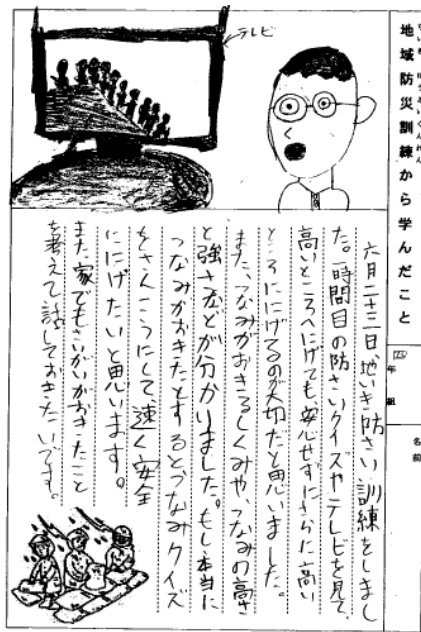 地域防災訓練から学んだこと
年 組
名前
テレビ
六月二十三日、地いき防さい訓練をしまし
た。一時間目の防さいクイズやテレビを見て、
高いところへにげても安心せずにさらに高い
ところににげてるのが大切だと思いました。
また、つなみがおきるしくみや、つなみの高さ
と強さなどが分かりました。もし本当に
つなみがおきたとするとつなみクイズ
をさんこうにして速く安全
ににげたいと思います。
また家でもさいがいがおきたこと
を考えて話しておきたいです。